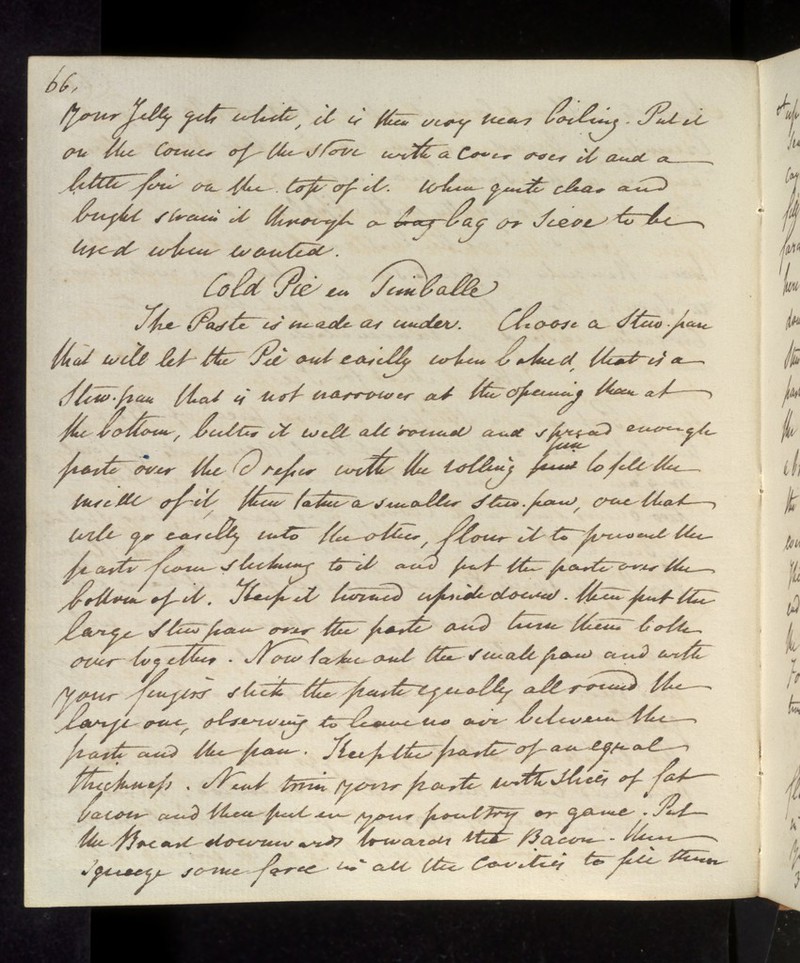 66,
your Jelly gets white, it is then very near boiling. Put it
on the corner of the stove with a cover over it and a
little fire on the top of it. when quite clear and
bright strain it through a bag bag or Sieve to be
used when wanted.
Cold Pie en Timballe
The Paste is made as under. Choose a Stew-pan
that will let the Pie out easilly when baked, that is a
Stew-pan that is not narrower at the opening than at
the bottom, butter it well all round and spread enough
paste over the Dresser with the rolling pin to fill the
inside of it, then take a smaller stew-pan, one that
will go easilly into the other, flour it to prevent the
paste from sticking to it and put the paste over the
bottom of it. Keep it turned upside down. then put the
large Stew pan over the paste and turn them both
over together. Now take out the small pan and with
your fingers stick the paste equally all round the
large one, observing to leave no air between the
paste and the pan. Keep the paste of an equal
thickness. Next trim your paste with slices of fat
bacon and then put in your poultry or game. Put
the Breast downwards towards the Bacon. then
squeeze some farce in all the Cavities to fill them